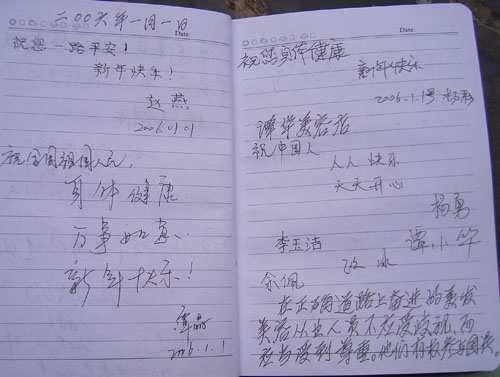 二00六年一月一日
Date:
祝您一路平安!
新年快乐!
赵燕
2006.01.01.
祝全国祖国人民.
身体健康.
万事如意.
新年快乐!
2006.1.1
Date:
祝您身体健康
新年快乐
2006.1.1号 杨
谭华美容店
祝中国人
人人快乐
天天开心
杨勇
李玉洁 谭小华
冰
余佩
在正确道路上奋进的美发
美容从业人员不应受歧视,而
应当受到尊重。他们有权参与国